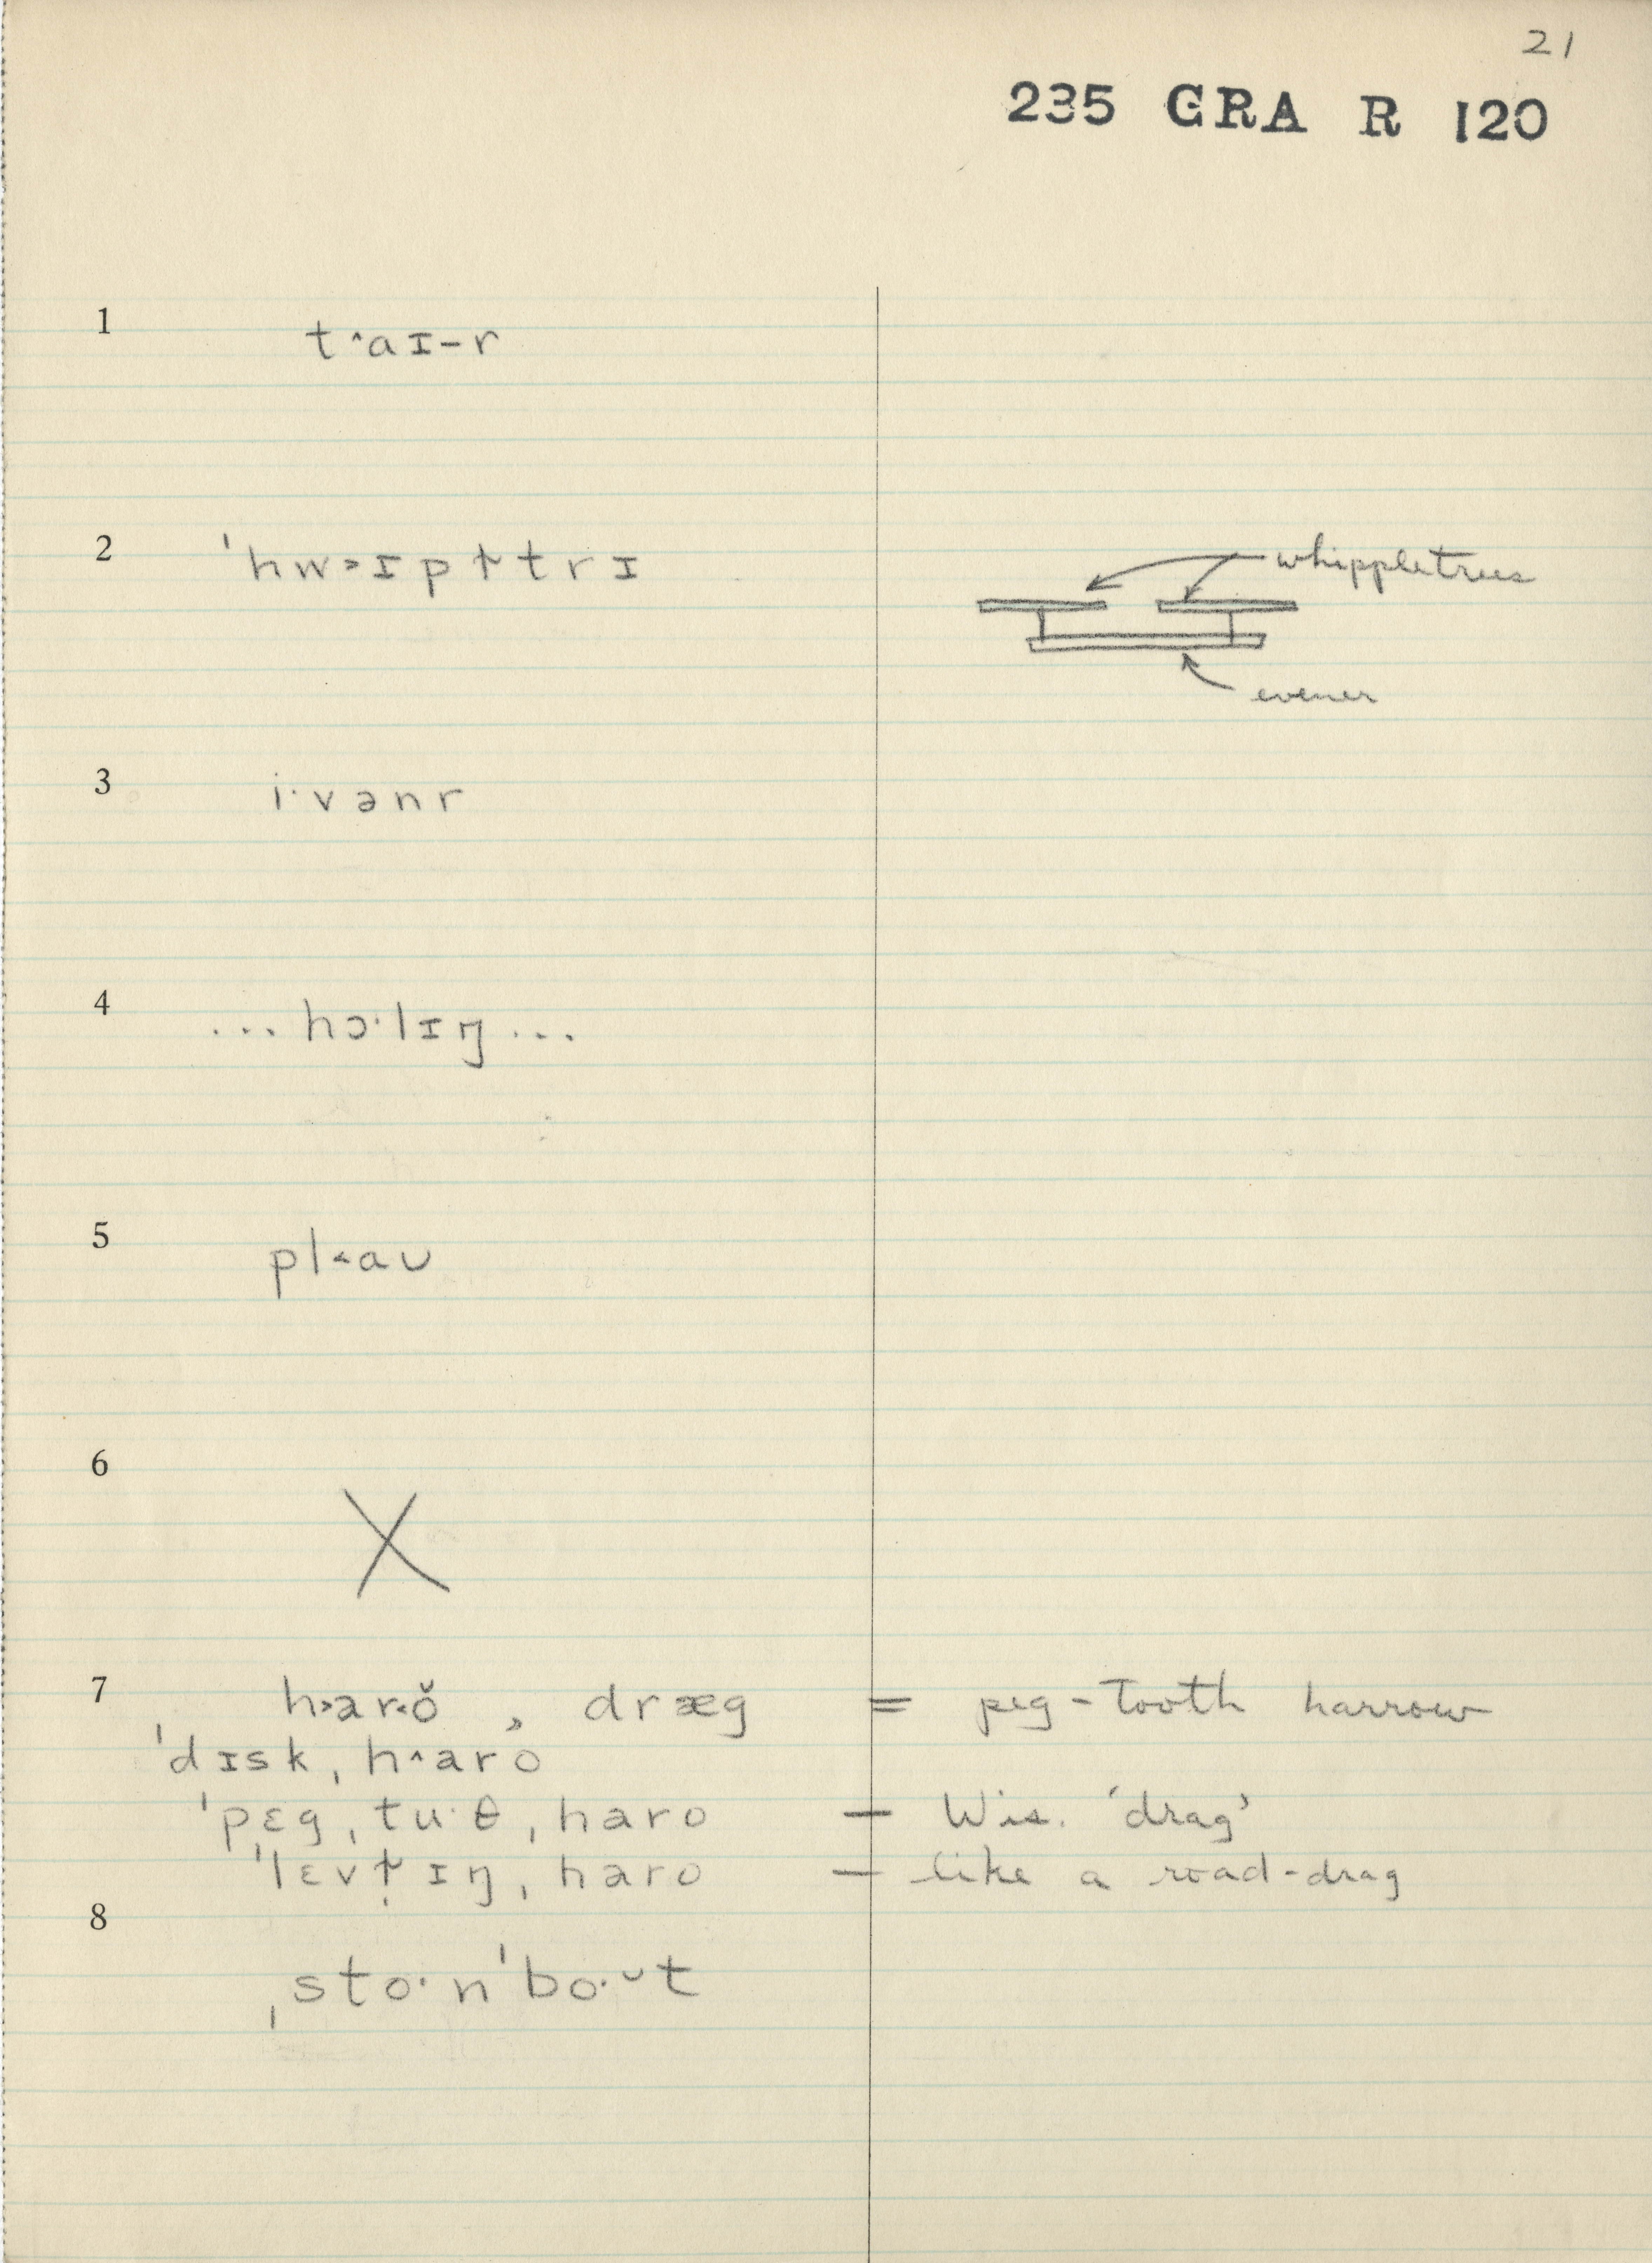 21
235 GRA R 120
1
t˄aɪ-r
2
ˈhw˃ɪpɫtrɪ
whippletrees
evener
3
i·vənr
4
... hɔ·lɪŋ ...
5
pl˂aʊ
6
X
7
h˃ar˂ŏ , dræg = peg-tooth harrow
ˈdɪskˌh˄aro
ˈpɛgˌtu·θˌharo — Wis. 'drag'
haro — like a road-drag
8
ˌsto·nˈbo·ᵕt